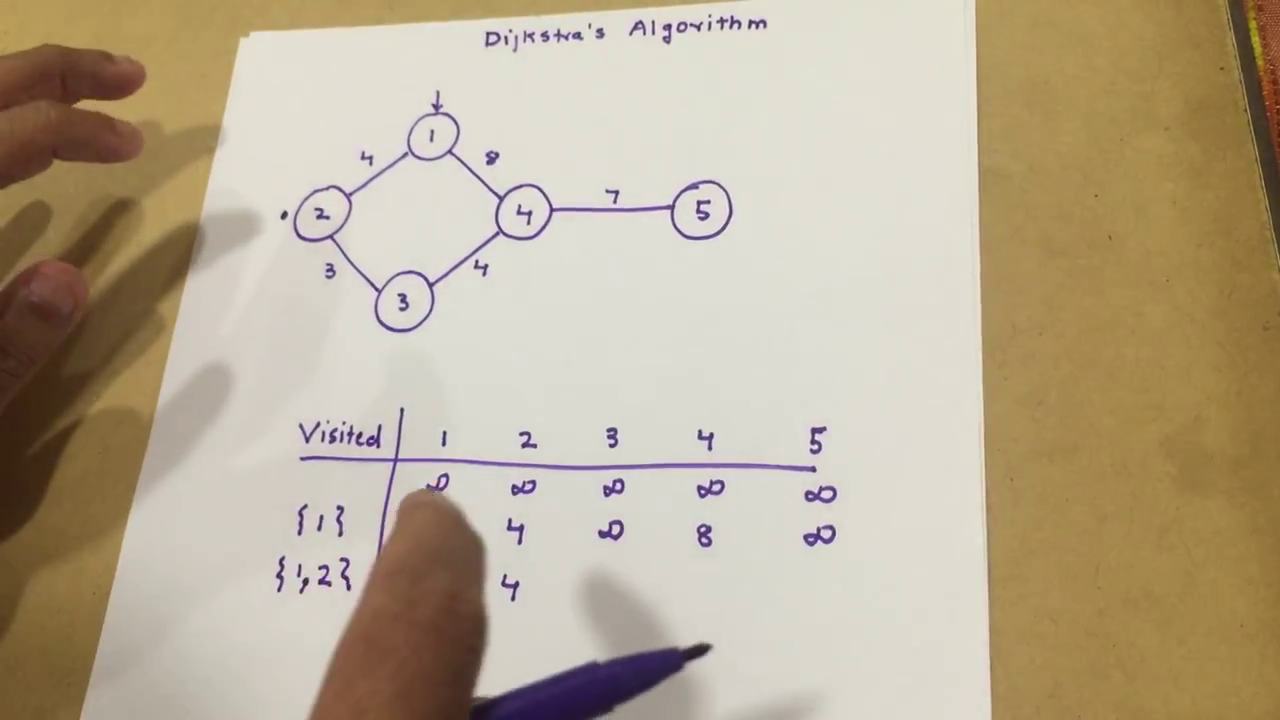 Dijkstra's Algorithm
1
4 8
2 4 7 5
3 4
3
Visited 1 2 3 4 5
∞ ∞ ∞ ∞ ∞
{1} 4 ∞ 8 ∞
{1,2} 4